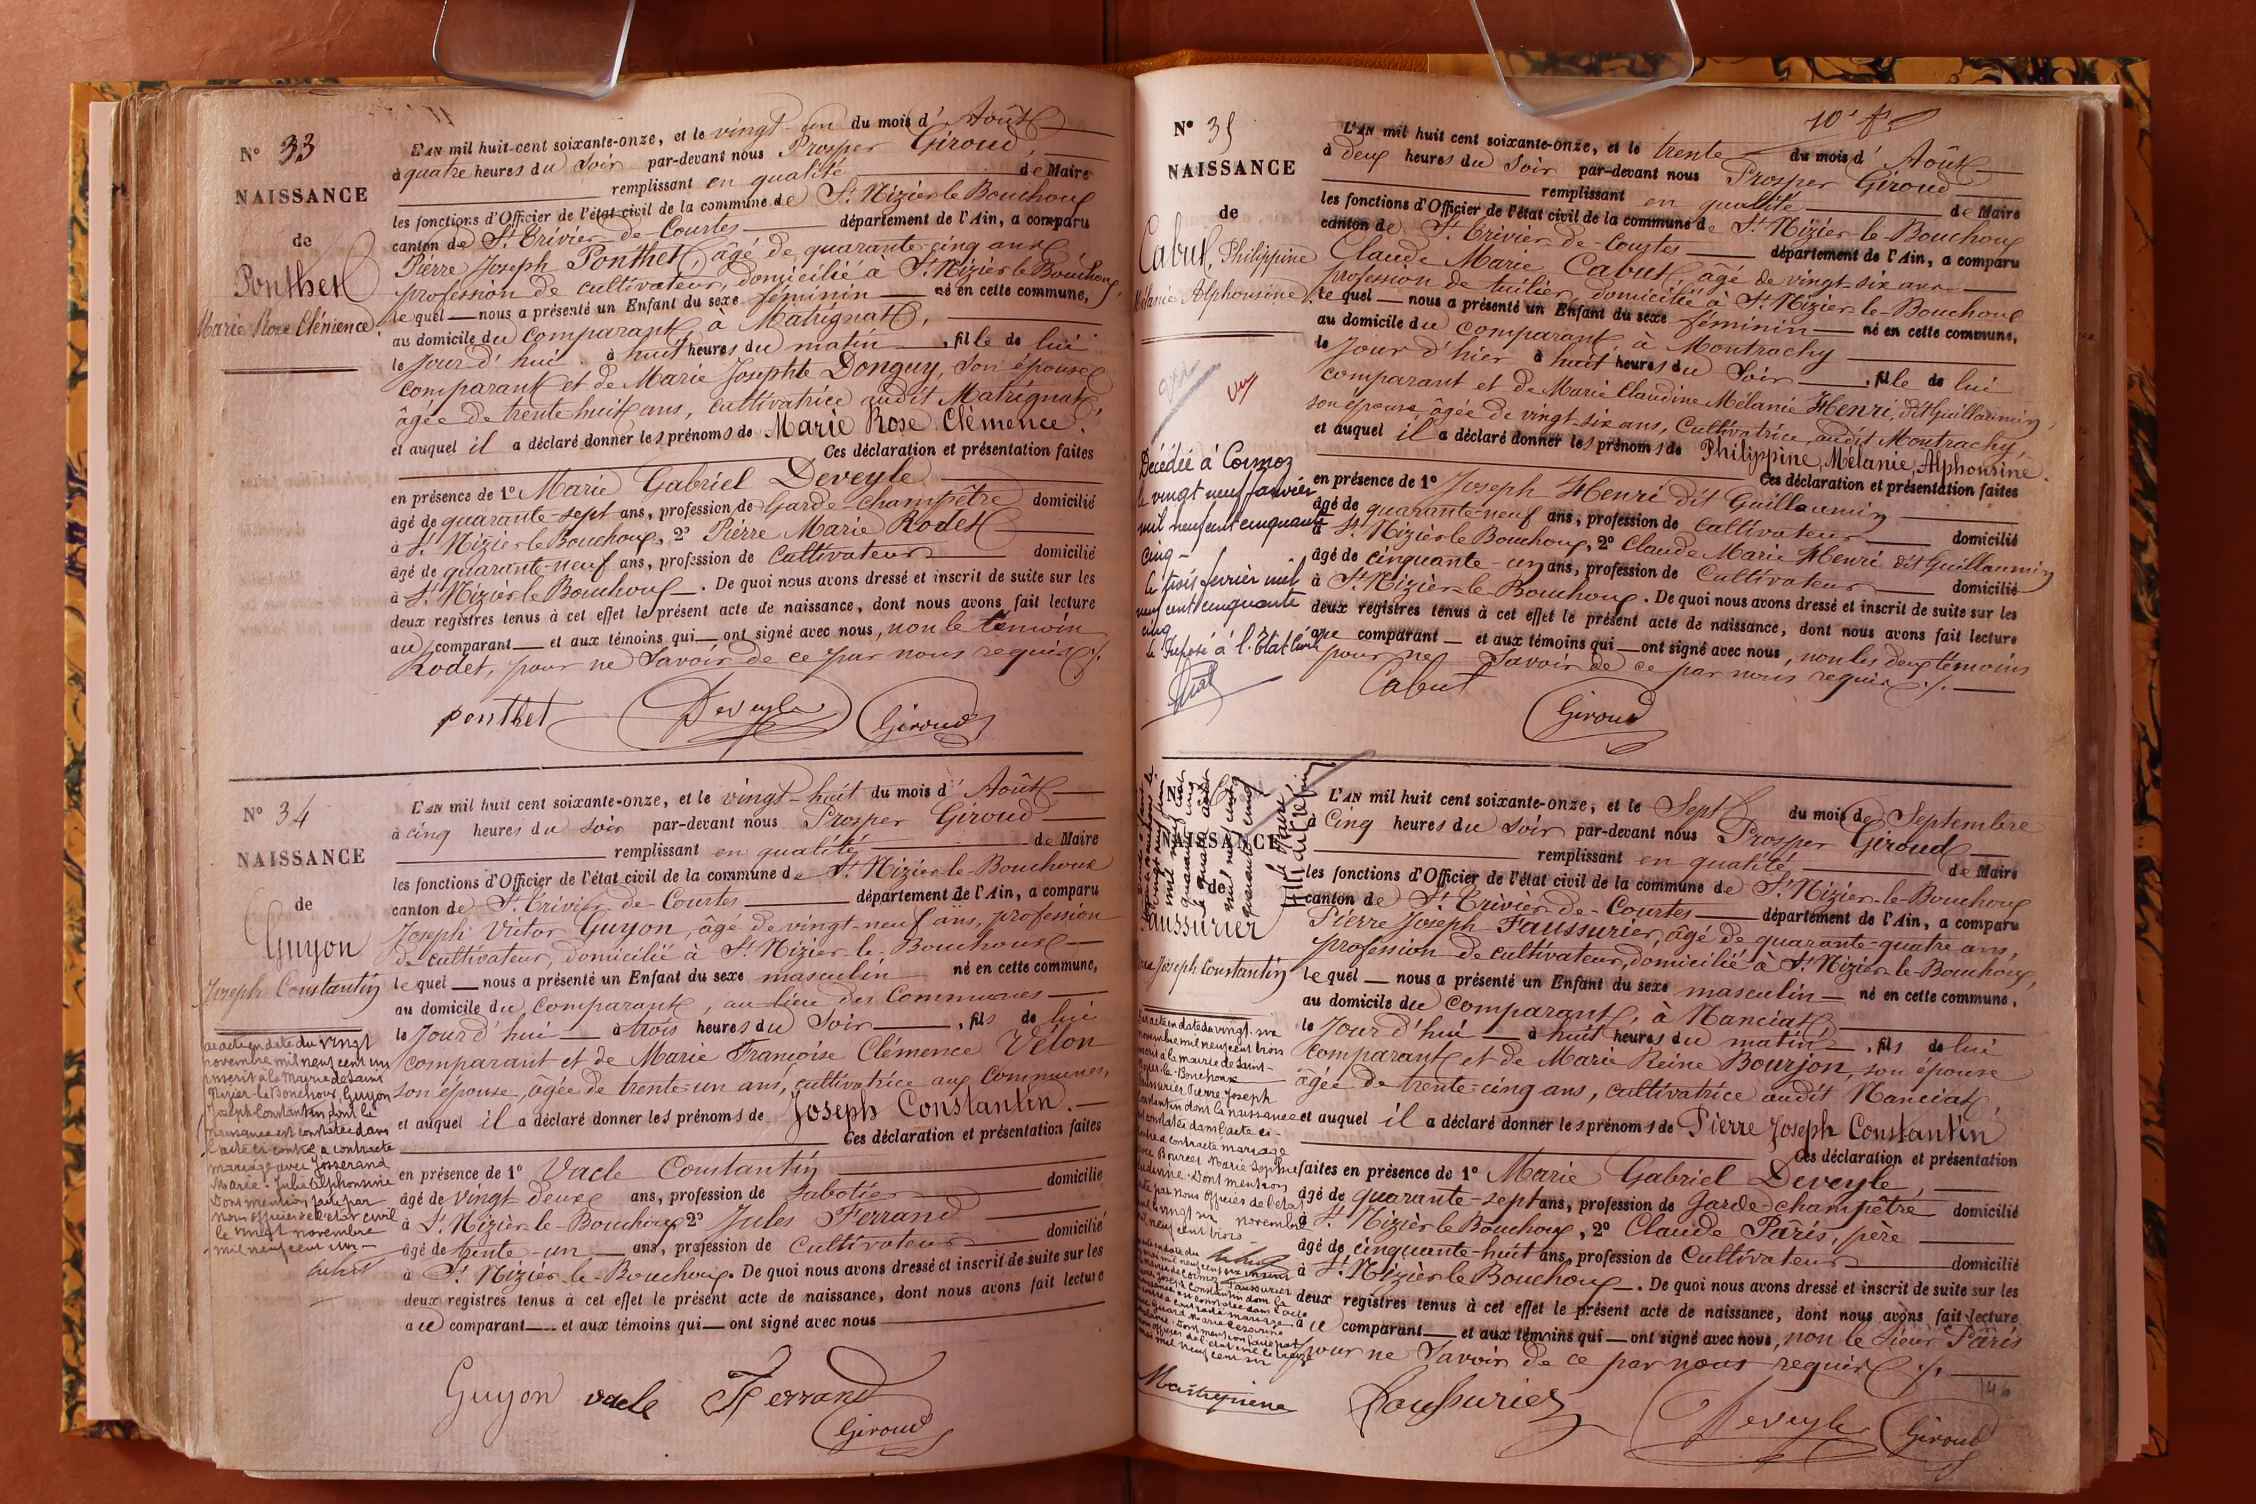 N° 33
NAISSANCE
de
Ponthet
Marie Rose Clémence
L'AN mil huit-cent soixante-onze, et le vingt-un du mois d'Août
à quatre heures du soir par-devant nous Prosper Giroud,
remplissant en qualité de Maire
les fonctions d'Officier de l'état civil de la commune de St Nizier le Bouchoux
canton de St Trivier-de-Courtes département de l'Ain, a comparu
Pierre Joseph Ponthet, âgé de quarante-cinq ans
profession de cultivateur, domicilié à St Nizier le Bouchoux,
lequel nous a présenté un Enfant du sexe féminin né en cette commune,
au domicile du comparant, à Matrignat,
le Jour d'hui à huit heures du matin, fille de lui
comparant et de Marie Josephte Donguy, son épouse
âgée de trente huit ans, cultivatrice audit Matrignat,
et auquel il a déclaré donner les prénoms de Marie Rose Clémence.
Ces déclaration et présentation faites
en présence de 1° Marie Gabriel Deveyle
âgé de quarante-sept ans, profession de Garde-champêtre domicilié
à St Nizier le Bouchoux, 2° Pierre Marie Rodet
âgé de quarante-neuf ans, profession de Cultivateur domicilié
à St Nizier le Bouchoux. De quoi nous avons dressé et inscrit de suite sur les
deux registres tenus à cet effet le présent acte de naissance, dont nous avons fait lecture
au comparant et aux témoins qui ont signé avec nous, non le témoin
Rodet, pour ne savoir de ce par nous requis ./.
ponthet Deveyle Giroud
N° 34
NAISSANCE
de
Guyon
Joseph Constantin
par acte en date du vingt
novembre mil neuf cent un
inscrit à la Mairie de Saint
Nizier-le-Bouchoux, Guyon
Joseph Constantin dont la
naissance est constatée dans
l'acte ci contre a contracté
mariage avec Josserand
Marie-Julie Alphonsine
Dont mention faite par
nous officier de l'état civil
le vingt novembre
mil neuf cent un
L'AN mil huit cent soixante-onze, et le vingt-huit du mois d'Août
à cinq heures du soir par-devant nous Prosper Giroud
remplissant en qualité de Maire
les fonctions d'Officier de l'état civil de la commune de St Nizier-le-Bouchoux
canton de St Trivier de Courtes département de l'Ain, a comparu
Joseph Victor Guyon, âgé de vingt-neuf ans, profession
de cultivateur, domicilié à St Nizier-le-Bouchoux
lequel nous a présenté un Enfant du sexe masculin né en cette commune,
au domicile du comparant, au lieu des Communes
le Jour d'hui à trois heures du Soir, fils de lui
comparant et de Marie Françoise Clémence Vélon
son épouse, âgée de trente-un ans, cultivatrice aux Communes,
et auquel il a déclaré donner les prénoms de Joseph Constantin.
Ces déclaration et présentation faites
en présence de 1° Vacle Constantin
âgé de vingt deux ans, profession de Sabotier domicilié
à St Nizier-le-Bouchoux 2° Jules Ferrand
âgé de trente-un ans, profession de Cultivateur domicilié
à St Nizier-le-Bouchoux. De quoi nous avons dressé et inscrit de suite sur les
deux registres tenus à cet effet le présent acte de naissance, dont nous avons fait lecture
au comparant et aux témoins qui ont signé avec nous
Guyon vacle Ferrand
Giroud
10e
N° 35
NAISSANCE
de
Cabut, Philippine
Mélanie Alphonsine
Vu
Décédée à Cormoz
le vingt neuf janvier
mil neuf cent cinquante
cinq -
le trois février mil
neuf cent cinquante
cinq
le Préposé à l'Etat Civil
L'AN mil huit cent soixante-onze, et le trente du mois d'Août
à deux heures du Soir par-devant nous Prosper Giroud
remplissant en qualité de Maire
les fonctions d'Officier de l'état civil de la commune de St Nizier-le-Bouchoux
canton de St Trivier-de-Courtes département de l'Ain, a comparu
Claude Marie Cabut âgé de vingt-six ans
profession de tuilier, domicilié à St Nizier-le-Bouchoux
lequel nous a présenté un Enfant du sexe féminin né en cette commune,
au domicile du comparant à Montrachy
le Jour d'hier à huit heures du Soir, fille de lui
comparant et de Marie Claudine Mélanie Henri, dit Guillaumin,
son épouse, âgée de vingt-six ans, Cultivatrice, audit Montrachy,
et auquel il a déclaré donner les prénoms de Philippine, Mélanie, Alphonsine.
Ces déclaration et présentation faites
en présence de 1° Joseph Henri dit Guillaumin
âgé de quarante-neuf ans, profession de Cultivateur domicilié
à St Nizier le Bouchoux, 2° Claude Marie Henri dit Guillaumin
âgé de cinquante-un ans, profession de Cultivateur domicilié
à St Nizier-le-Bouchoux. De quoi nous avons dressé et inscrit de suite sur les
deux registres tenus à cet effet le présent acte de naissance, dont nous avons fait lecture
au comparant et aux témoins qui ont signé avec nous, non les deux témoins
pour ne Savoir de ce par nous requis ./.
Cabut
Giroud
NAISSANCE
de
Faussurier
Joseph Constantin
le Maire
L'AN mil huit cent soixante-onze, et le Sept du mois de Septembre
à Cinq heures du Soir par-devant nous Prosper Giroud
remplissant en qualité de Maire
les fonctions d'Officier de l'état civil de la commune de St Nizier-le-Bouchoux
canton de St Trivier-de-Courtes département de l'Ain, a comparu
Pierre Joseph Faussurier, âgé de quarante-quatre ans,
profession de cultivateur, domicilié à St Nizier-le-Bouchoux,
lequel nous a présenté un Enfant du sexe masculin né en cette commune,
au domicile du comparant, à Nanciat,
le Jour d'hui à huit heures du matin, fils de lui
comparant et de Marie Reine Bourjon, son épouse
âgée de trente-cinq ans, cultivatrice audit Nanciat,
et auquel il a déclaré donner les prénoms de Pierre Joseph Constantin
Ces déclaration et présentation
faites en présence de 1° Marie Gabriel Deveyle,
âgé de quarante-sept ans, profession de Garde-champêtre domicilié
à St Nizier le Bouchoux, 2° Claude Pâris, père
âgé de cinquante-huit ans, profession de Cultivateur domicilié
à St Nizier le Bouchoux. De quoi nous avons dressé et inscrit de suite sur les
deux registres tenus à cet effet le présent acte de naissance, dont nous avons fait lecture
au comparant et aux témoins qui ont signé avec nous, non le Sieur Pâris
pour ne Savoir de ce par nous requis ./.
Faussurier Deveyle Giroud